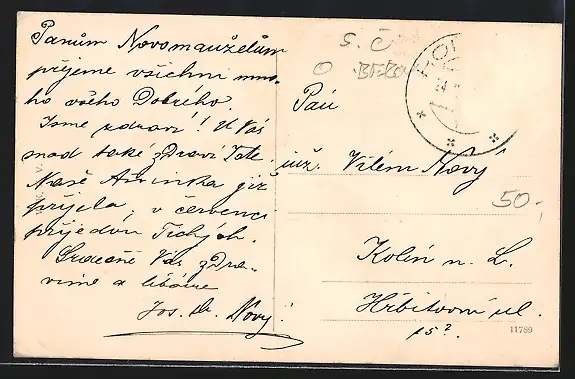 Panům Novomanželům
přijeme všichni mno-
ho všeho Dobrého.
Jsme zdraví! U Vás
snad také zdraví jste.
Naše Aninka již
přijela, v červenci
přijedou Tichých.
Srdečně Vás zdra-
víme a líbáme
Jos. Nový.
S. Č
Pán
inž. Vilém Nový
50,-
Kolín n. L.
Hřbitovní ul.
15?
11789